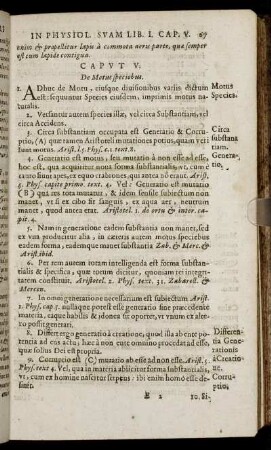 IN PHYSIOL. SVAM LIB. I. CAP. V. 67
enim & propellitur lapis à commota aeris parte, qua semper
est cum lapide contigua.
CAPVT V.
De Motus speciebus.
1. ADhuc de Motu, eiusque diuisionibus variis dictum
est: sequuntur Species eiusdem, inprimis motus na-
turalis.
Motus
Species.
2. Versantur autem species illæ, vel circa Substantiam, vel
circa Accidens.
3. Circa substantiam occupata est Generatio & Corru-
ptio, (A) quæ tamen Aristoteli mutationes potius, quàm mo-
tus sunt motus. Arist. 5. Phys. c. 1. text. 7.
Circa
substan
tiam.
Genera-
tio,
4. Generatio est motus, seu mutatio à non esse ad esse,
hoc est, qua acquiritur noua forma substantialis, vt, cum
5. Phys. capite primo. text. 4. Vel: Generatio est mutatio
(B) vnius totius in aliud totum, & idem sensile subiectum non
manet, vt cum ex cibo fit sanguis, ex aqua aer, neutrum
manet, quod manet erat. Aristotel. 1. de ortu & inter. ca-
pit. 4.
5. Nam in generatione eadem substantia non manet, sed
ex vna producitur alia, in cæteris autem motus speciebus
eadem forma, eademque manet substantia Zab. & Merc. &
Arist. ibid.
6. Per rem autem totam intelligenda est forma substan-
tialis & specifica, quæ totum dicitur, quoniam rei integri-
tatem constituit. Aristotel. 2. Phys. text. 31. Zabarel. &
Mercen.
7. In omni generatione necessarium est subiectum Arist.
1. Phys. cap. 7. nullaque potest esse generatio sine præcedente
materia, eaque habilis & idonea se oportet, vt vnum ex alte-
ro possit generari.
8. Differt ergo generatio à creatione, quod illa ab ente po-
tentia ad ens actu, hæc à non ente omnino procedat ad esse,
quæ solius Dei est propria.
Differentia
Generationis
à Creatio-
ne.
9. Corruptio est (C) mutatio ab esse ad non esse. Arist. 5.
Phys. text 4. Vel, qua in materia abiicitur forma substantialis, vt
cum ex homine nascitur serpens: ibi enim homo esse de-
sinit.
Corru-
ptio,
E 2 10. Si-